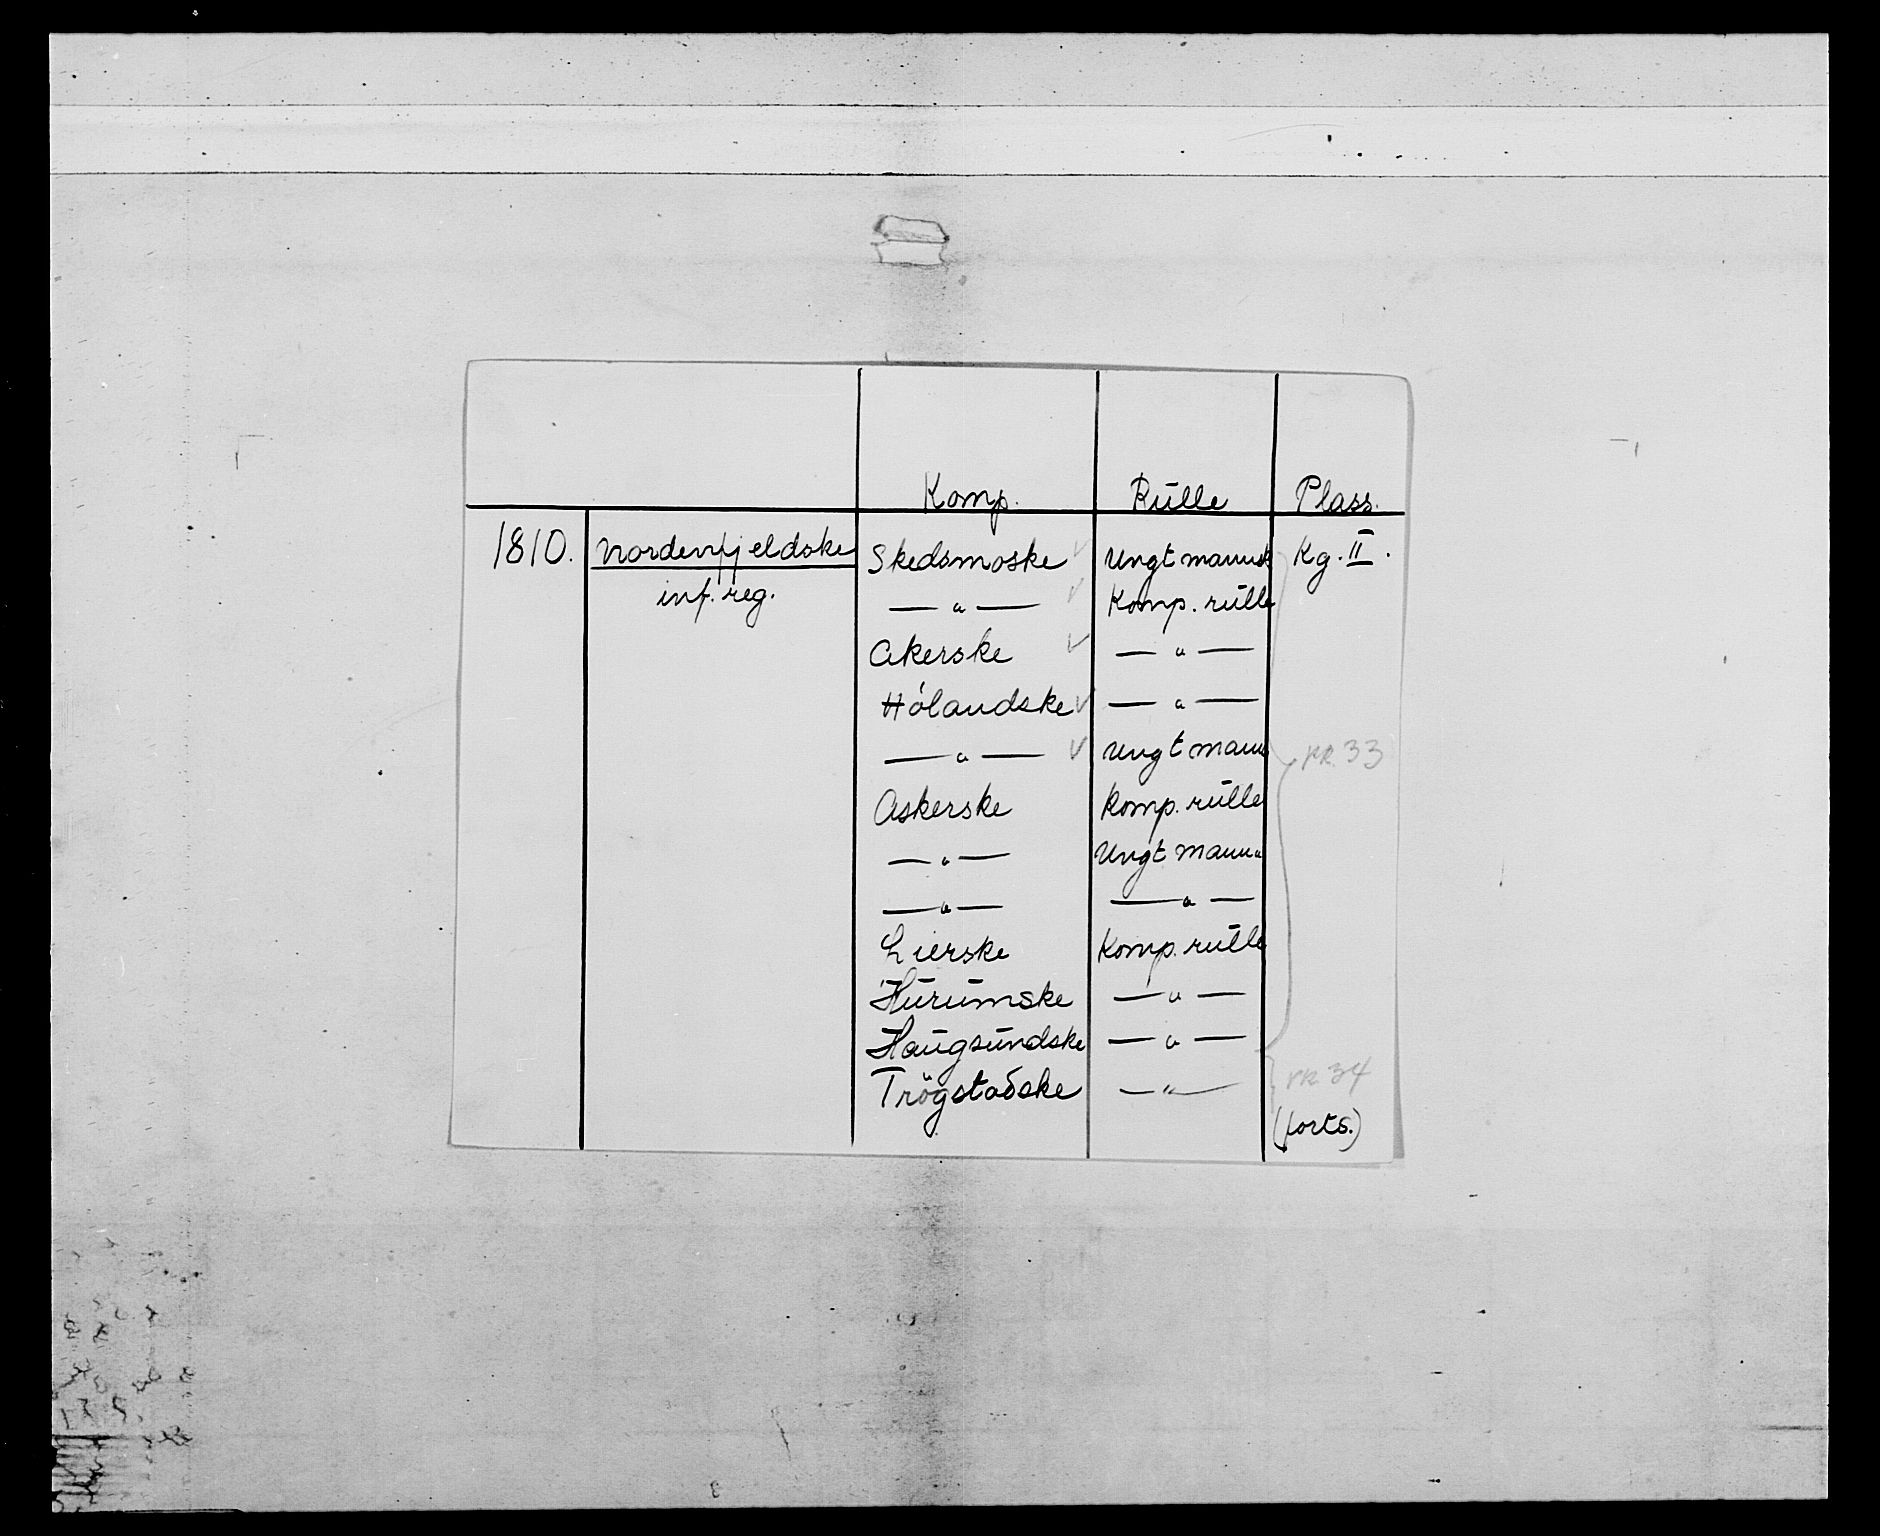 Komp. Rulle Plass.
1810. Nordenfjeldske Skedsmoske ✓ Ungt mannsk Kg. II.
inf. reg. — " — ✓ Komp. rulle
Akerske ✓ — " —
Hólandske ✓ — " —
— " — ✓ Ungt mann nr. 33
Askerske Komp. rulle
— " — Ungt manns
— " — — " —
Lierske Komp. rulle
Hurumske — " —
Haugsundske — " —
Trögstadske — " — nr 34
(forts.)